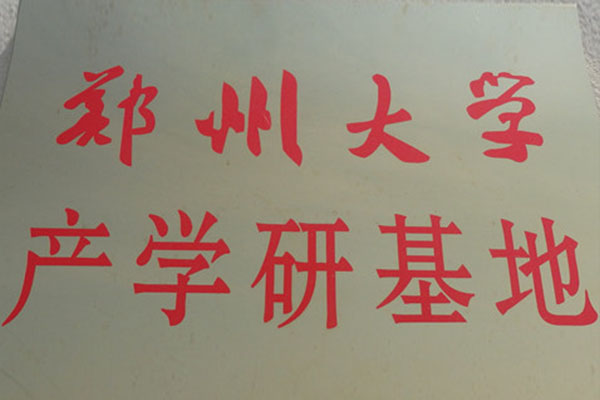 郑州大学
产学研基地